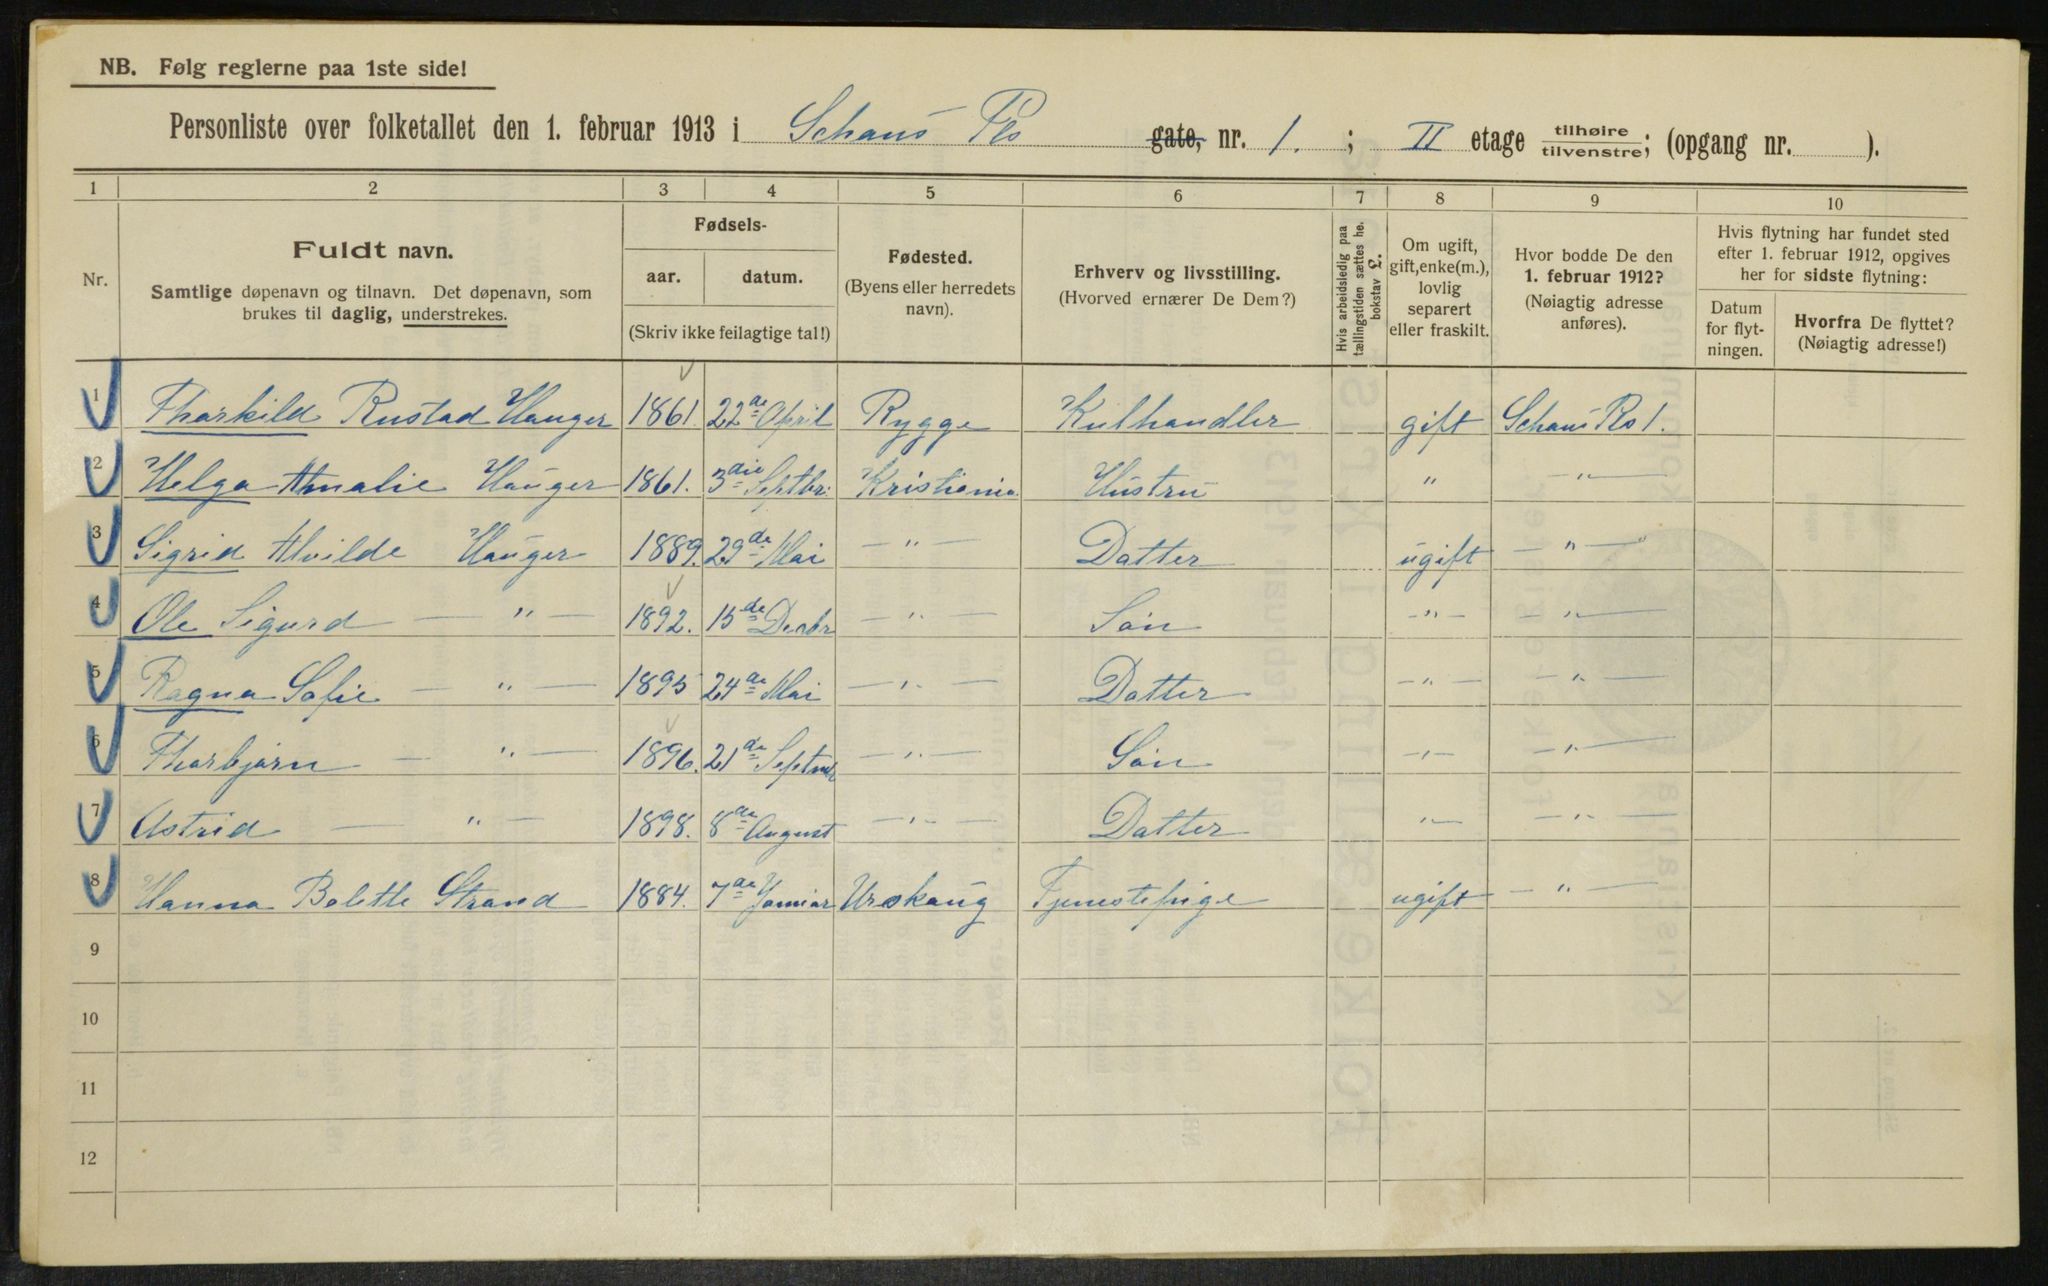 NB. Følg reglerne paa 1ste side!
Personliste over folketallet den 1. februar 1913 i Schaus Pls gate, nr. 1. ; II etage tilhøire tilvenstre; (opgang nr. ).
1 2 3 4 5 6 7 8 9 10
Nr.
Fuldt navn.
Samtlige døpenavn og tilnavn. Det døpenavn, som
brukes til daglig, understrekes.
Fødsels-
aar. datum.
(Skriv ikke feilagtige tal!)
Fødested.
(Byens eller herredets
navn).
Erhverv og livsstilling.
(Hvorved ernærer De Dem?)
Hvis arbeidsledig paa
tællingstiden sættes her
bokstav L.
Om ugift,
gift, enke(m.),
lovlig
separert
eller fraskilt.
Hvor bodde De den
1. februar 1912?
(Nøiagtig adresse
anføres).
Hvis flytning har fundet sted
efter 1. februar 1912, opgives
her for sidste flytning:
Datum
for flyt-
ningen.
Hvorfra De flyttet?
(Nøiagtig adresse!)
1 Tharkild Rustad Hauger 1861. 22de April Rygge Kulhandler gift Schaus Pls 1.
2 Helga Amalie Hauger 1861. 3die Septbr. Kristiania Hustru " — " —
3 Sigrid Alvilde Hauger 1889. 29de Mai — " — Datter ugift — " —
4 Ole Sigurd — " — 1892. 15de Decbr — " — Søn — " — — " —
5 Ragna Sofie — " — 1895 24de Mai — " — Datter — " — — " —
6 Tharbjørn — " — 1896. 21de Septmbr — " — Søn — " — — " —
7 Astrid — " — 1898. 8de August — " — Datter — " — — " —
8 Hanna Bolette Strand 1884. 7de Januar Urskaug Tjenestepige ugift — " —
9
10
11
12